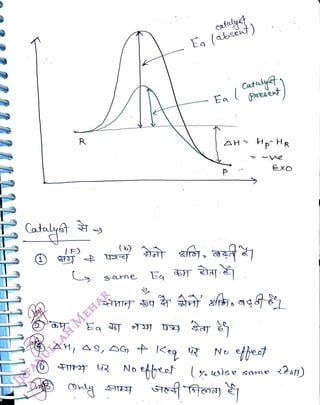 Ea (catalyst absent)
Ea (catalyst present)
R
ΔH = Hp - HR
= -ve
Exo
P
Catalyst से →
① (f) (b) दोनो अभि. बढ़ती है।
↳ same Ea कम होता है।
समान रूप से दोनो अभि. बढ़ती है।
② कम Ea का नया पथ देता है
ΔH, ΔS, ΔG + Keq पर No effect
④ साम्य पर No effect (% wise same रहेगा)
only साम्य जल्दी मिलता है।
MEHAR